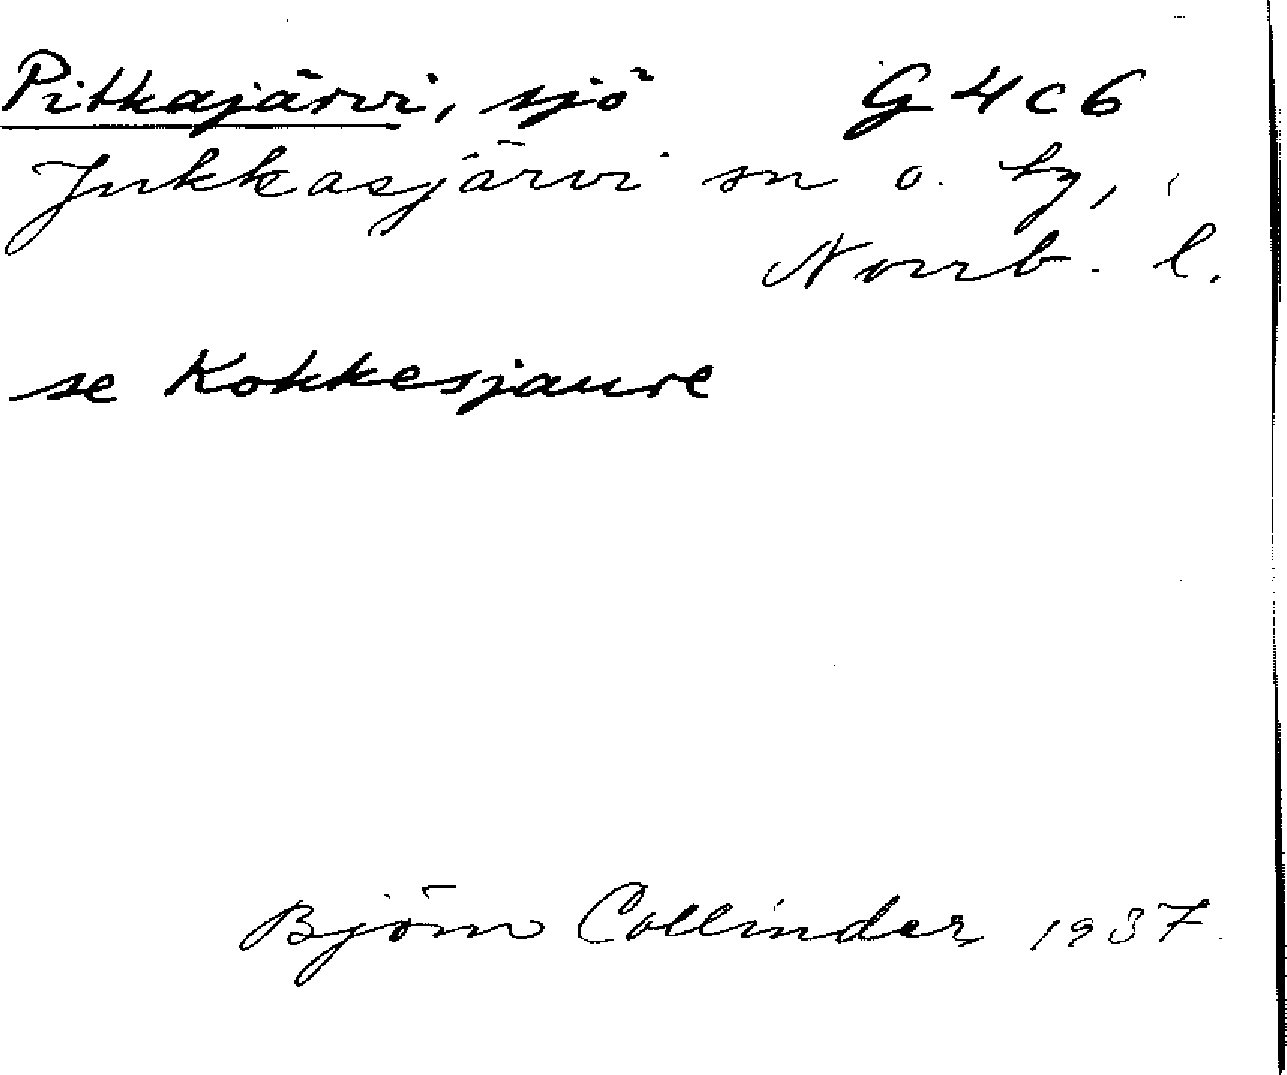 Pitkajärvi, sjö G 4 c 6
Jukkasjärvi sn o. tg,
Norrb. l.
se Kokkesjaure
Björn Collinder 1937